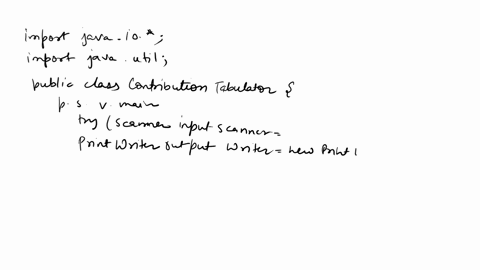 import java.io.*;
import java.util;
public class Contribution Tabulator {
p. s. v. main
try (scanner input scanner =
PrintWriter output writer = new Print (